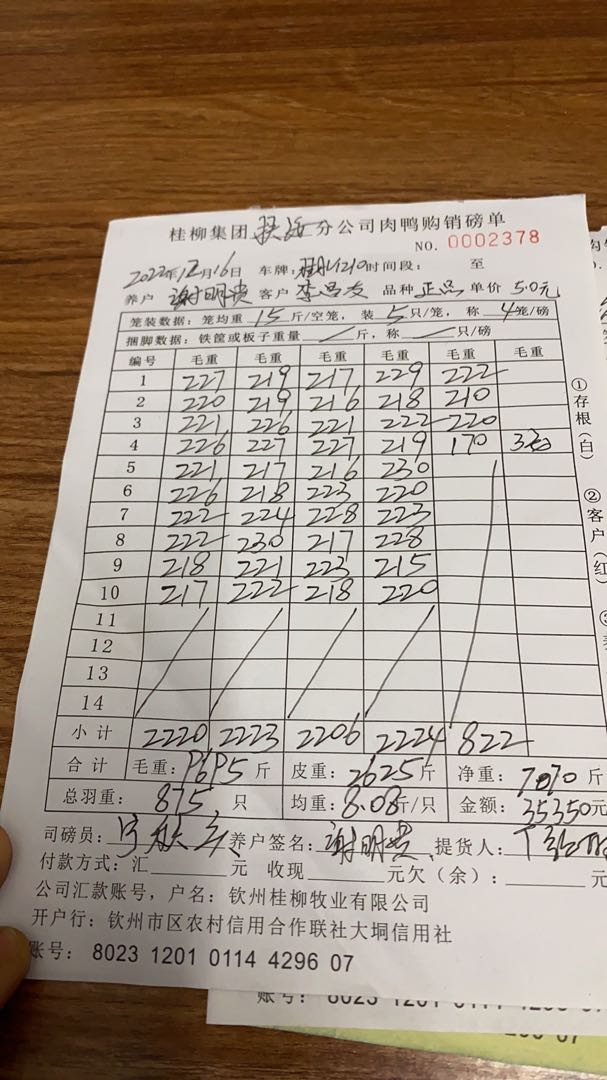 桂柳集团 分公司肉鸭购销磅单
NO. 0002378
2022年12月16日 车牌: 时间段: 至
养户 谢明贵 客户 李昌友 品种 正品 单价 5.0元
笼装数据: 笼均重 15 斤/空笼, 装 5 只/笼, 称 4 笼/磅
捆脚数据: 铁筐或板子重量 斤, 称 只/磅
编号 毛重 毛重 毛重 毛重 毛重 毛重
1 227 219 217 229 222
2 220 219 216 218 210
3 221 226 221 222 220
4 226 227 227 219 170
5 221 217 216 230
6 226 218 223 220
7 222 224 228 223
8 222 230 217 228
9 218 221 223 215
10 217 222 218 220
11
12
13
14
小计 2220 2223 2206 2224 822
合计 毛重: 9695 斤 皮重: 2625 斤 净重: 7070 斤
总羽重: 875 只 均重: 8.08 斤/只 金额: 35350元
司磅员: 养户签名: 谢明贵 提货人:
付款方式: 汇 元 收现 元欠(余): 元
公司汇款账号, 户名: 钦州桂柳牧业有限公司
开户行: 钦州市区农村信用合作联社大垌信用社
账号: 8023 1201 0114 4296 07
①存根(白)
②客户(红)
账号: 8023 1201 0114 4296 07